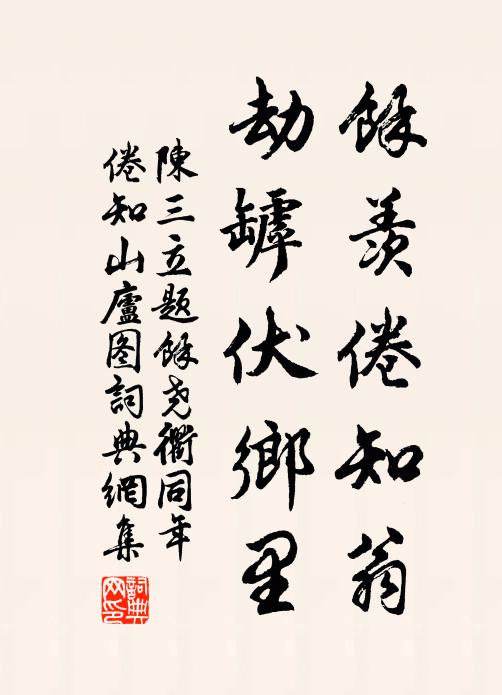 餘羨倦知翁
劫罅伏鄉里
陳三立題餘尧衢同年
倦知山廬图詞典網集
詞典網印